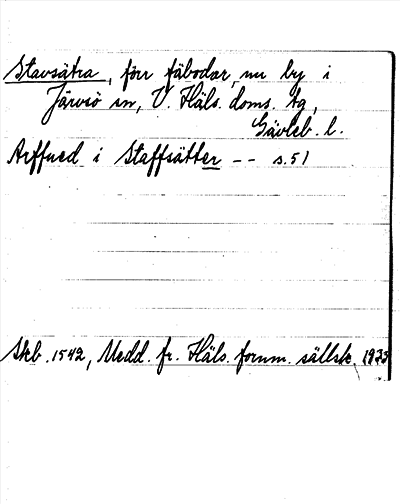 Stavsätra, förr fäbodar, nu by i
Järvsö sn, V. Häls. doms. tg,
Gävleb. l.
Arffued i Staffsätter -- s.51
Skb. 1542, Medd. fr. Häls. fornm. sällsk. 1935